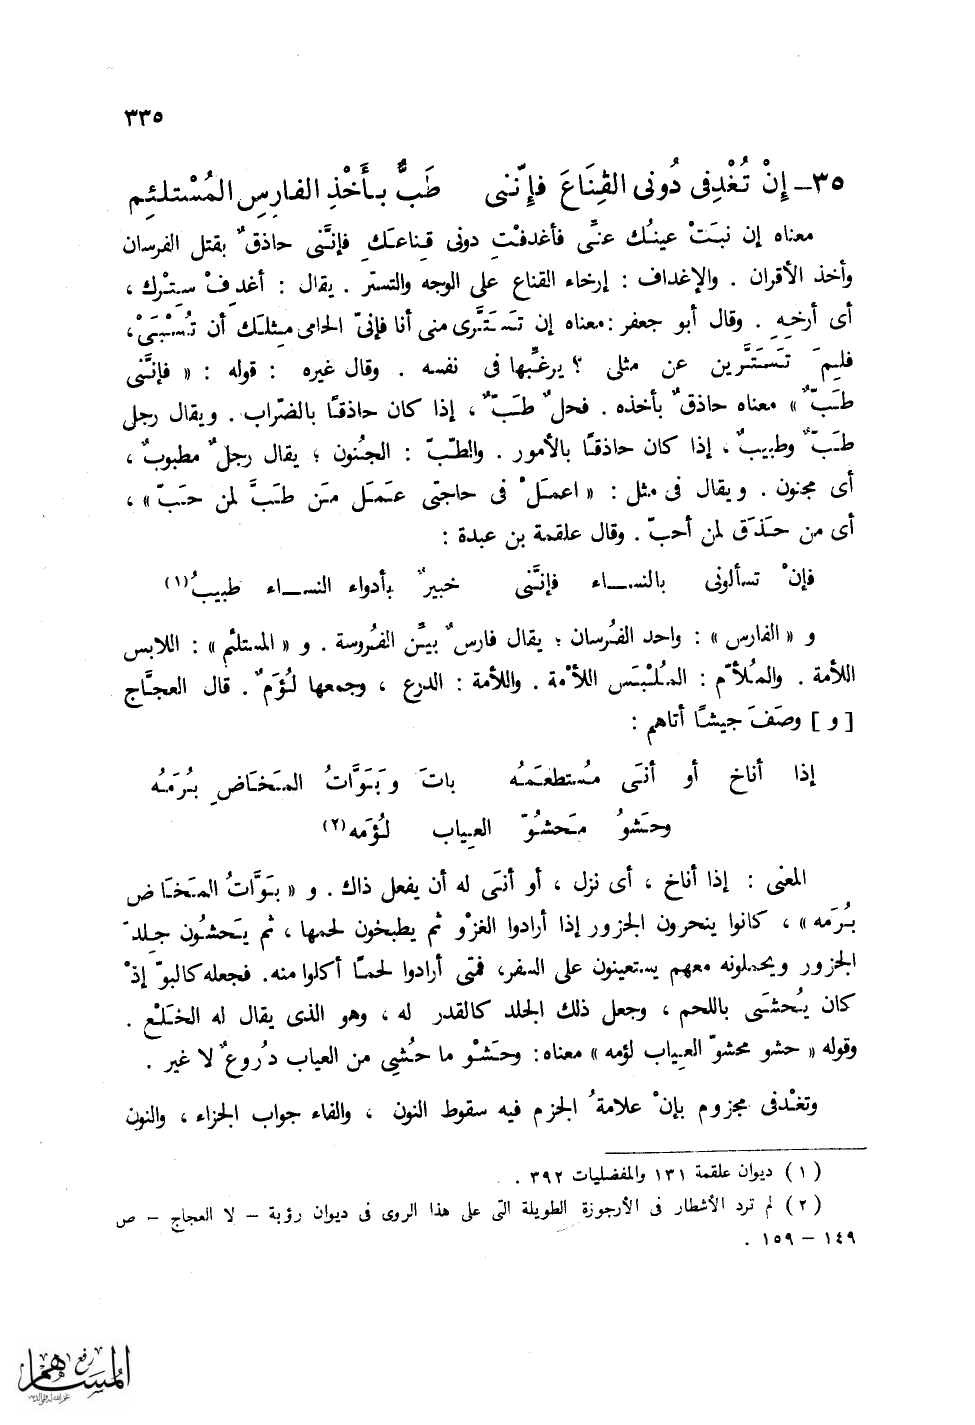 ٣٣٥
٣٥ــ إِنْ تُغْدِفى دُونى القِنَاعَ فإِنّنى طَبٌّ بـأَخْذِ الفارِسِ المُسْتلئِم
معناه إن نبَتْ عينُك عنِّى فأغدفْتِ دونى قِناعَكِ فإنَّنى حاذقٌ بقتل الفرسان
وأخذ الأقران . والإغداف : إرخاء القناع على الوجه والتستّر . يقال : أغدِفْ سِتْرك ،
أى أرخِهِ . وقال أبو جعفر : معناه إن تَسَتَّرى منى أنا فإنىّ الحامى مِثلَك أن تُسْبَىْ ،
فلِمَ تَسَتَّرين عن مثلى ؟ يرغّبها فى نفسه . وقال غيره : قوله : « فإنَّنى
طَبّ » معناه حاذقٌ بأخذه . فحلٌ طَبٌّ ، إذا كان حاذقًا بالضِّراب . ويقال رجل
طَبٌّ وطبيبٌ ، إذا كان حاذقًا بالأمور . والطّبّ : الجنُون ؛ يقال رجلٌ مطبوبٌ ،
أى مجنون . ويقال فى مثل : « اعمَلْ فى حاجتى عَمَل مَن طَبَّ لمن حَبّ » ،
أى من حَذَق لمن أحبّ . وقال علقمة بن عبدة :
فإنْ تسألونى بالنســاء فإنَّنى خبيرٌ بأدواء النســاء طبيبُ(١)
و « الفارس » : واحد الفُرسان ؛ يقال فارسٌ بيِّن الفُروسة . و « المستلئم » : اللابس
اللأمة . والمُلأّم : المُلْبَس اللأْمة . واللأمة : الدرع ، وجمعها لُؤَمٌ . قال العجَّاج
[ و ] وصَفَ جيشًا أتاهم :
إذا أناخ أو أنَى مُستطعَمُه باتَ وبَوَّاتُ المَخَاضِ بُرَمُه
وحَشوُ مَحشُوّ العِياب لُؤَمه(٢)
المعنى : إذا أناخ ، أى نزل ، أو أنَى له أن يفعل ذاك . و « بَوَّاتُ المَخَاض
بُرَمه » ، كانوا ينحرون الجزور إذا أرادوا الغزْو ثم يطبخون لحمها ، ثم يَحشُون جِلدَ
الجزور ويحملونه معهم يستعينون على السفر، فمتى أرادوا لحمًا أكلوا منه. فجعله كالبوّ إذْ
كان يُحشَى باللحم ، وجعل ذلك الجلد كالقدر له ، وهو الذى يقال له الخَلْع .
وقوله « حشو محشوّ العِياب لؤمه » معناه: وحَشْو ما حُشِىِ من العياب دُروعٌ لا غير .
وتغْدفى مجزوم بإنْ علامةُ الجزم فيه سقوط النون ، والفاء جواب الجزاء ، والنون
( ١ ) ديوان علقمة ١٣١ والمفضليات ٣٩٢ .
( ٢ ) لم ترد الأشطار فى الأرجوزة الطويلة التى على هذا الروى فى ديوان رؤبة – لا العجاج – ص
١٤٩ – ١٥٩ .
رفع
المساهم